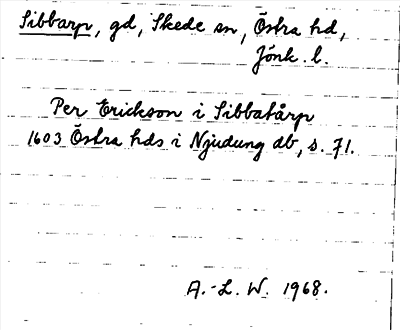 Sibbarp, gd, Skede sn, Östra hd,
Jönk. l.
Per Erickson i Sibbatårp
1603 Östra hds i Njudung db, s. 71.
A.-L. W. 1968.